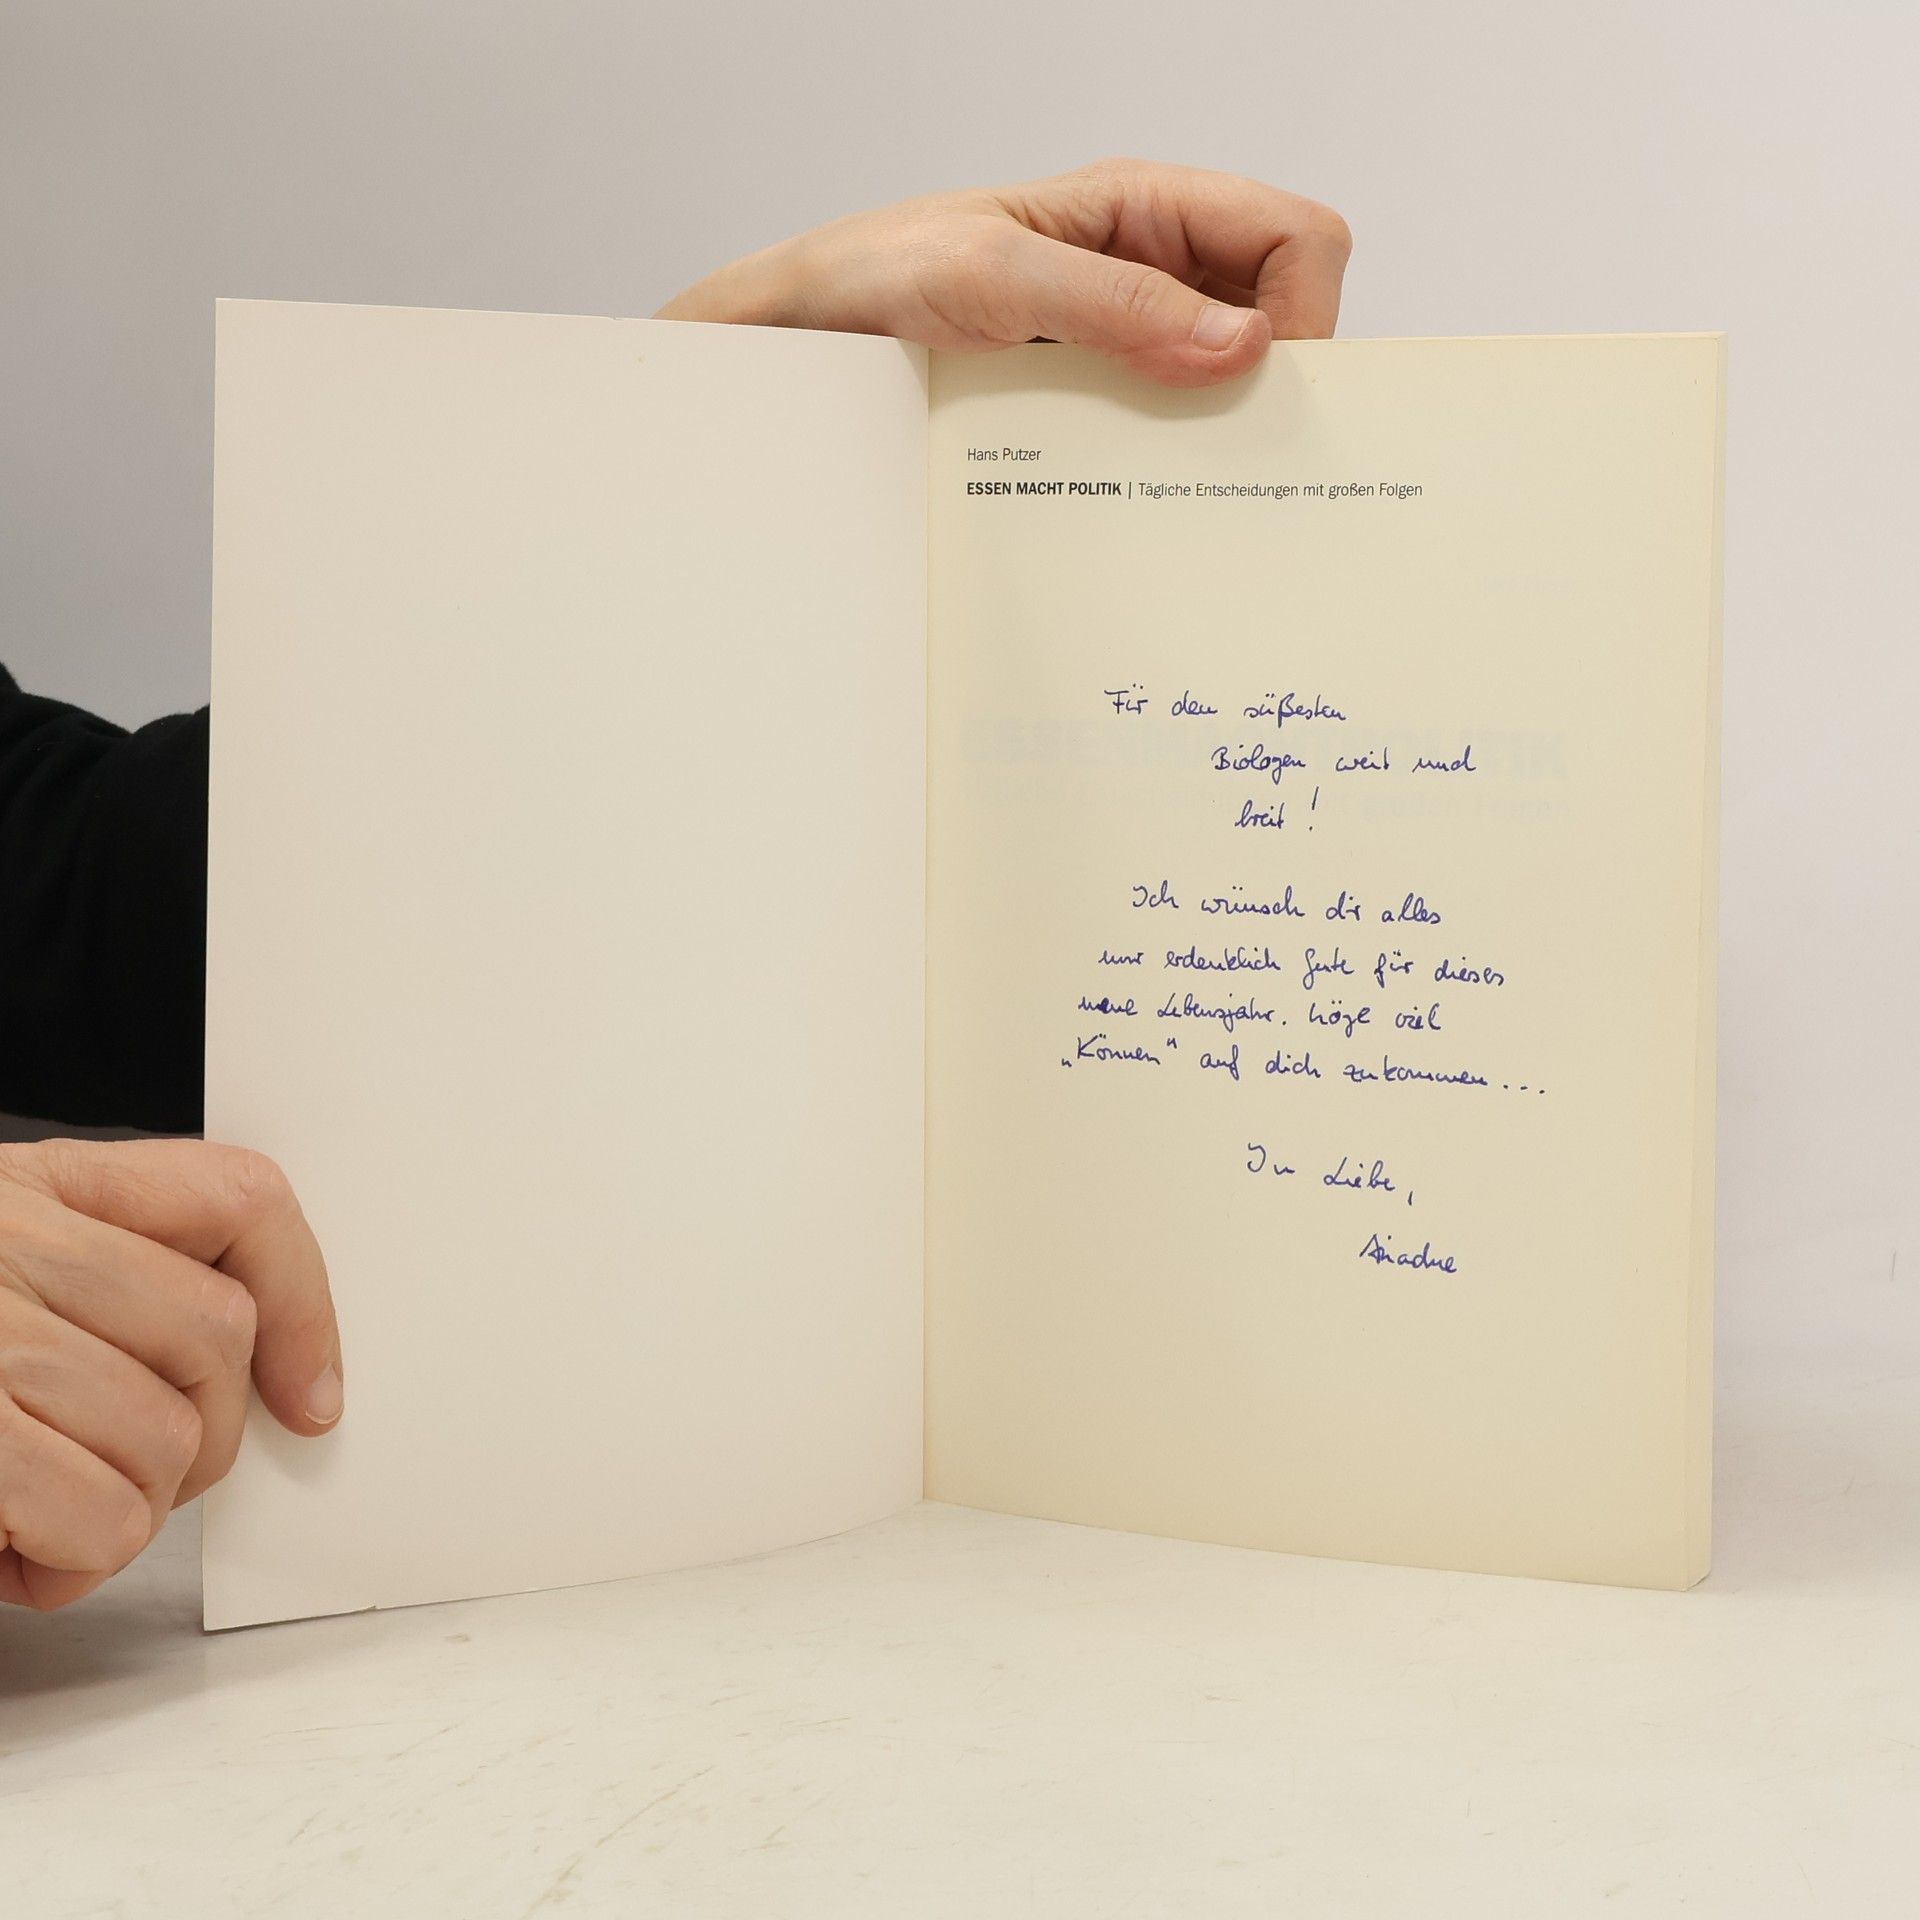 Hans Putzer
ESSEN MACHT POLITIK | Tägliche Entscheidungen mit großen Folgen
Für den süßesten
Biologen weit und
breit!
Ich wünsch dir alles
nur erdenklich Gute für dieses
neue Lebensjahr. Möge viel
„Können" auf dich zukommen...
In Liebe,
Ariadne